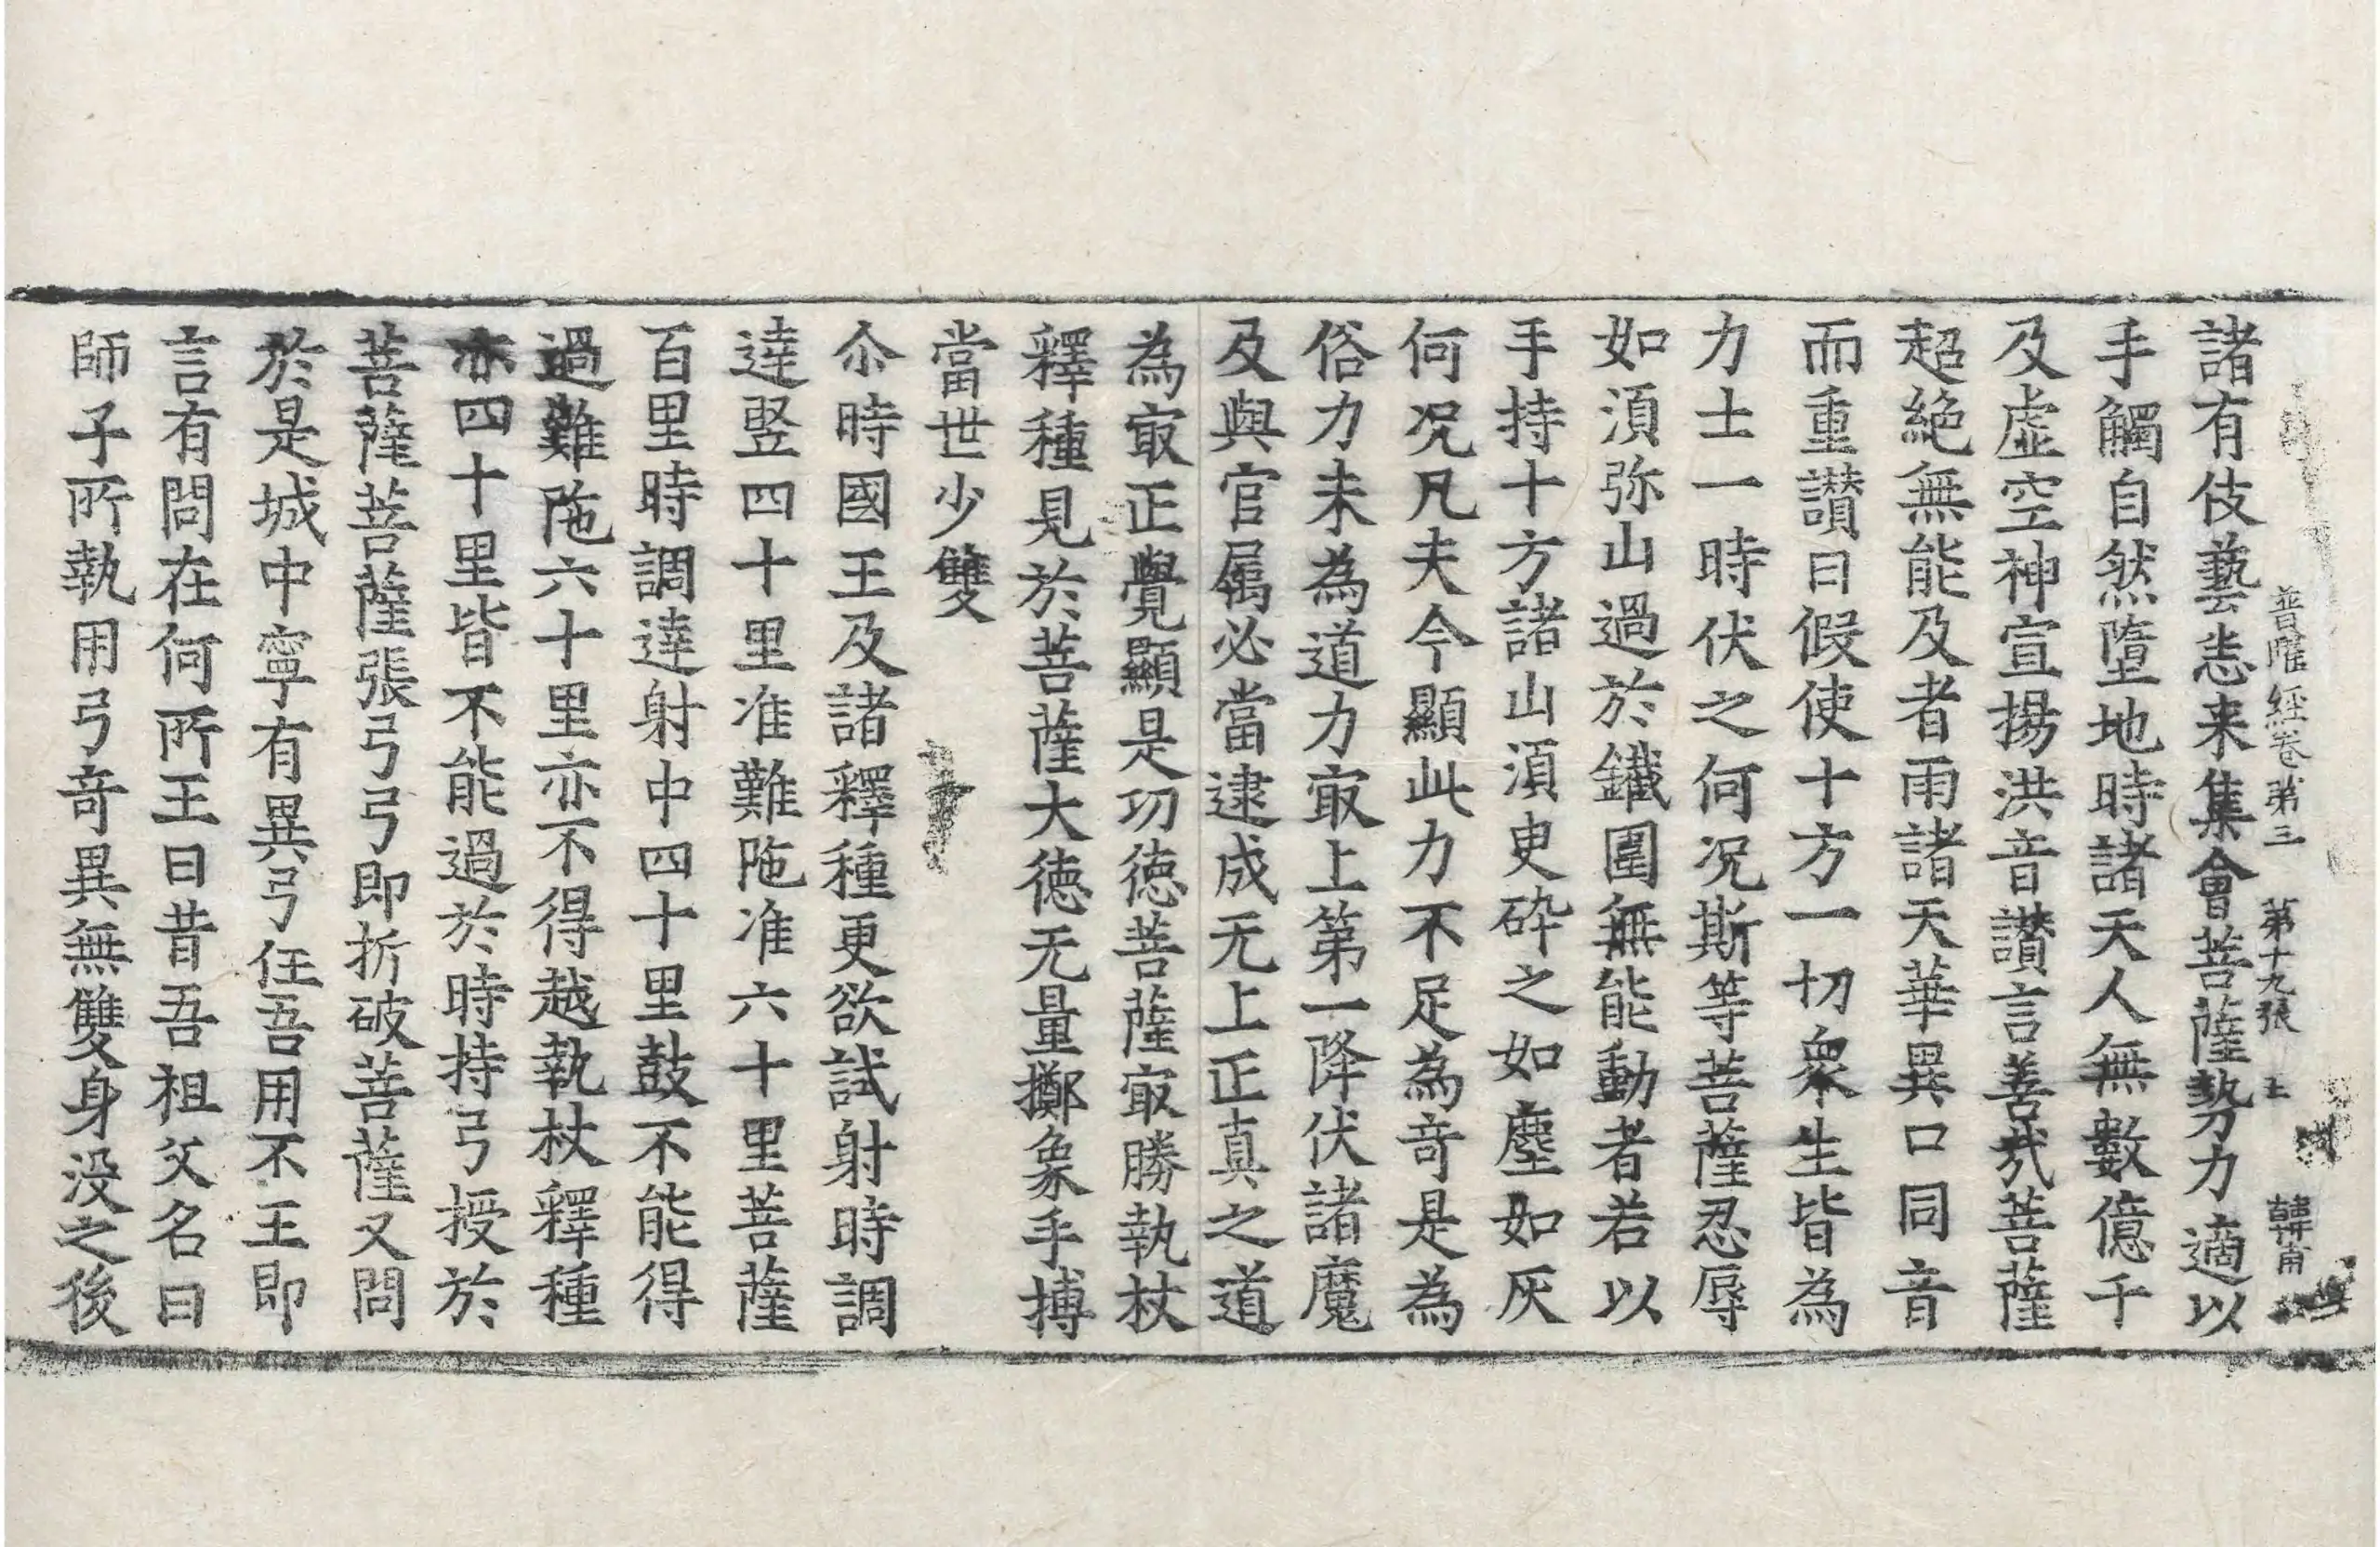 普曜經卷第三 第十九張 王 韓甫
諸有伎藝悉来集會菩薩勢力適以
手觸自然墮地時諸天人無數億千
及虛空神宣揚洪音讃言善㢤菩薩
超絶無能及者雨諸天華異口同音
而重讃曰假使十方一切衆生皆為
力士一時伏之何况斯等菩薩忍辱
如湏弥山過於鐵圍無能動者若以
手持十方諸山湏㬰碎之如塵如灰
何况凡夫今顯此力不足為竒是為
俗力未為道力㝡上第一降伏諸魔
及與官属必當逮成无上正真之道
為㝡正覺顯是功徳菩薩㝡勝執杖
釋種見於菩薩大徳无量擲象手搏
當世少雙
尒時國王及諸釋種更欲試射時調
達竪四十里准難陁准六十里菩薩
百里時調達射中四十里鼓不能得
過難陁六十里亦不得越執杖釋種
亦四十里皆不能過於時持弓授於
菩薩菩薩張弓弓即折破菩薩又問
於是城中寧有異弓任吾用不王即
言有問在何所王曰昔吾祖父名曰
師子所執用弓竒異無雙身没之後